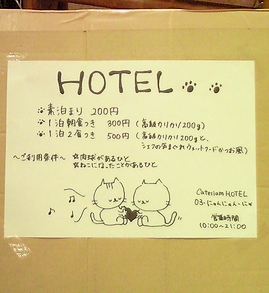 HOTEL
素泊まり 200円
1泊朝食つき 300円(高級カリカリ200g)
1泊2食つき 500円(高級カリカリ200gと、
シェフの気まぐれウェットフードかつお風)
〜ご利用条件〜 ☆肉球があるひと
☆ねこになったことがあるひと
HOTEL
03-にゃんにゃん-にゃ
営業時間
10:00〜21:00